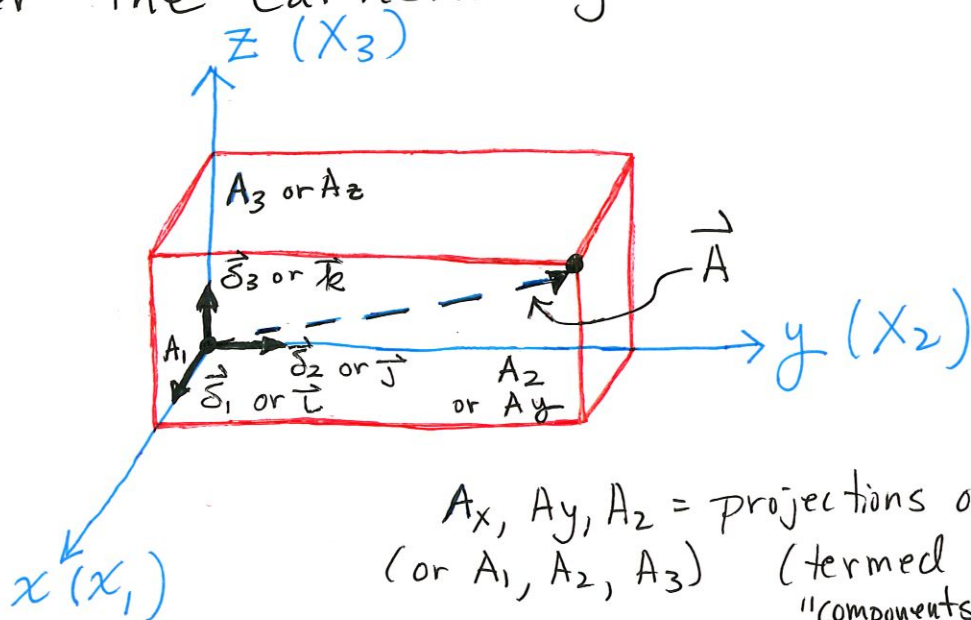 the
z (X3)
A3 or Az
δ⃗3 or k⃗
A⃗
A1
δ⃗2 or j⃗
y (X2)
δ⃗1 or i⃗
A2
or Ay
Ax, Ay, Az = projections
(or A1, A2, A3) (termed
"components
x (x1)